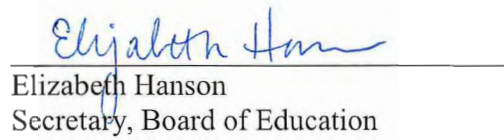 Elizabeth Hanson
Elizabeth Hanson
Secretary, Board of Education